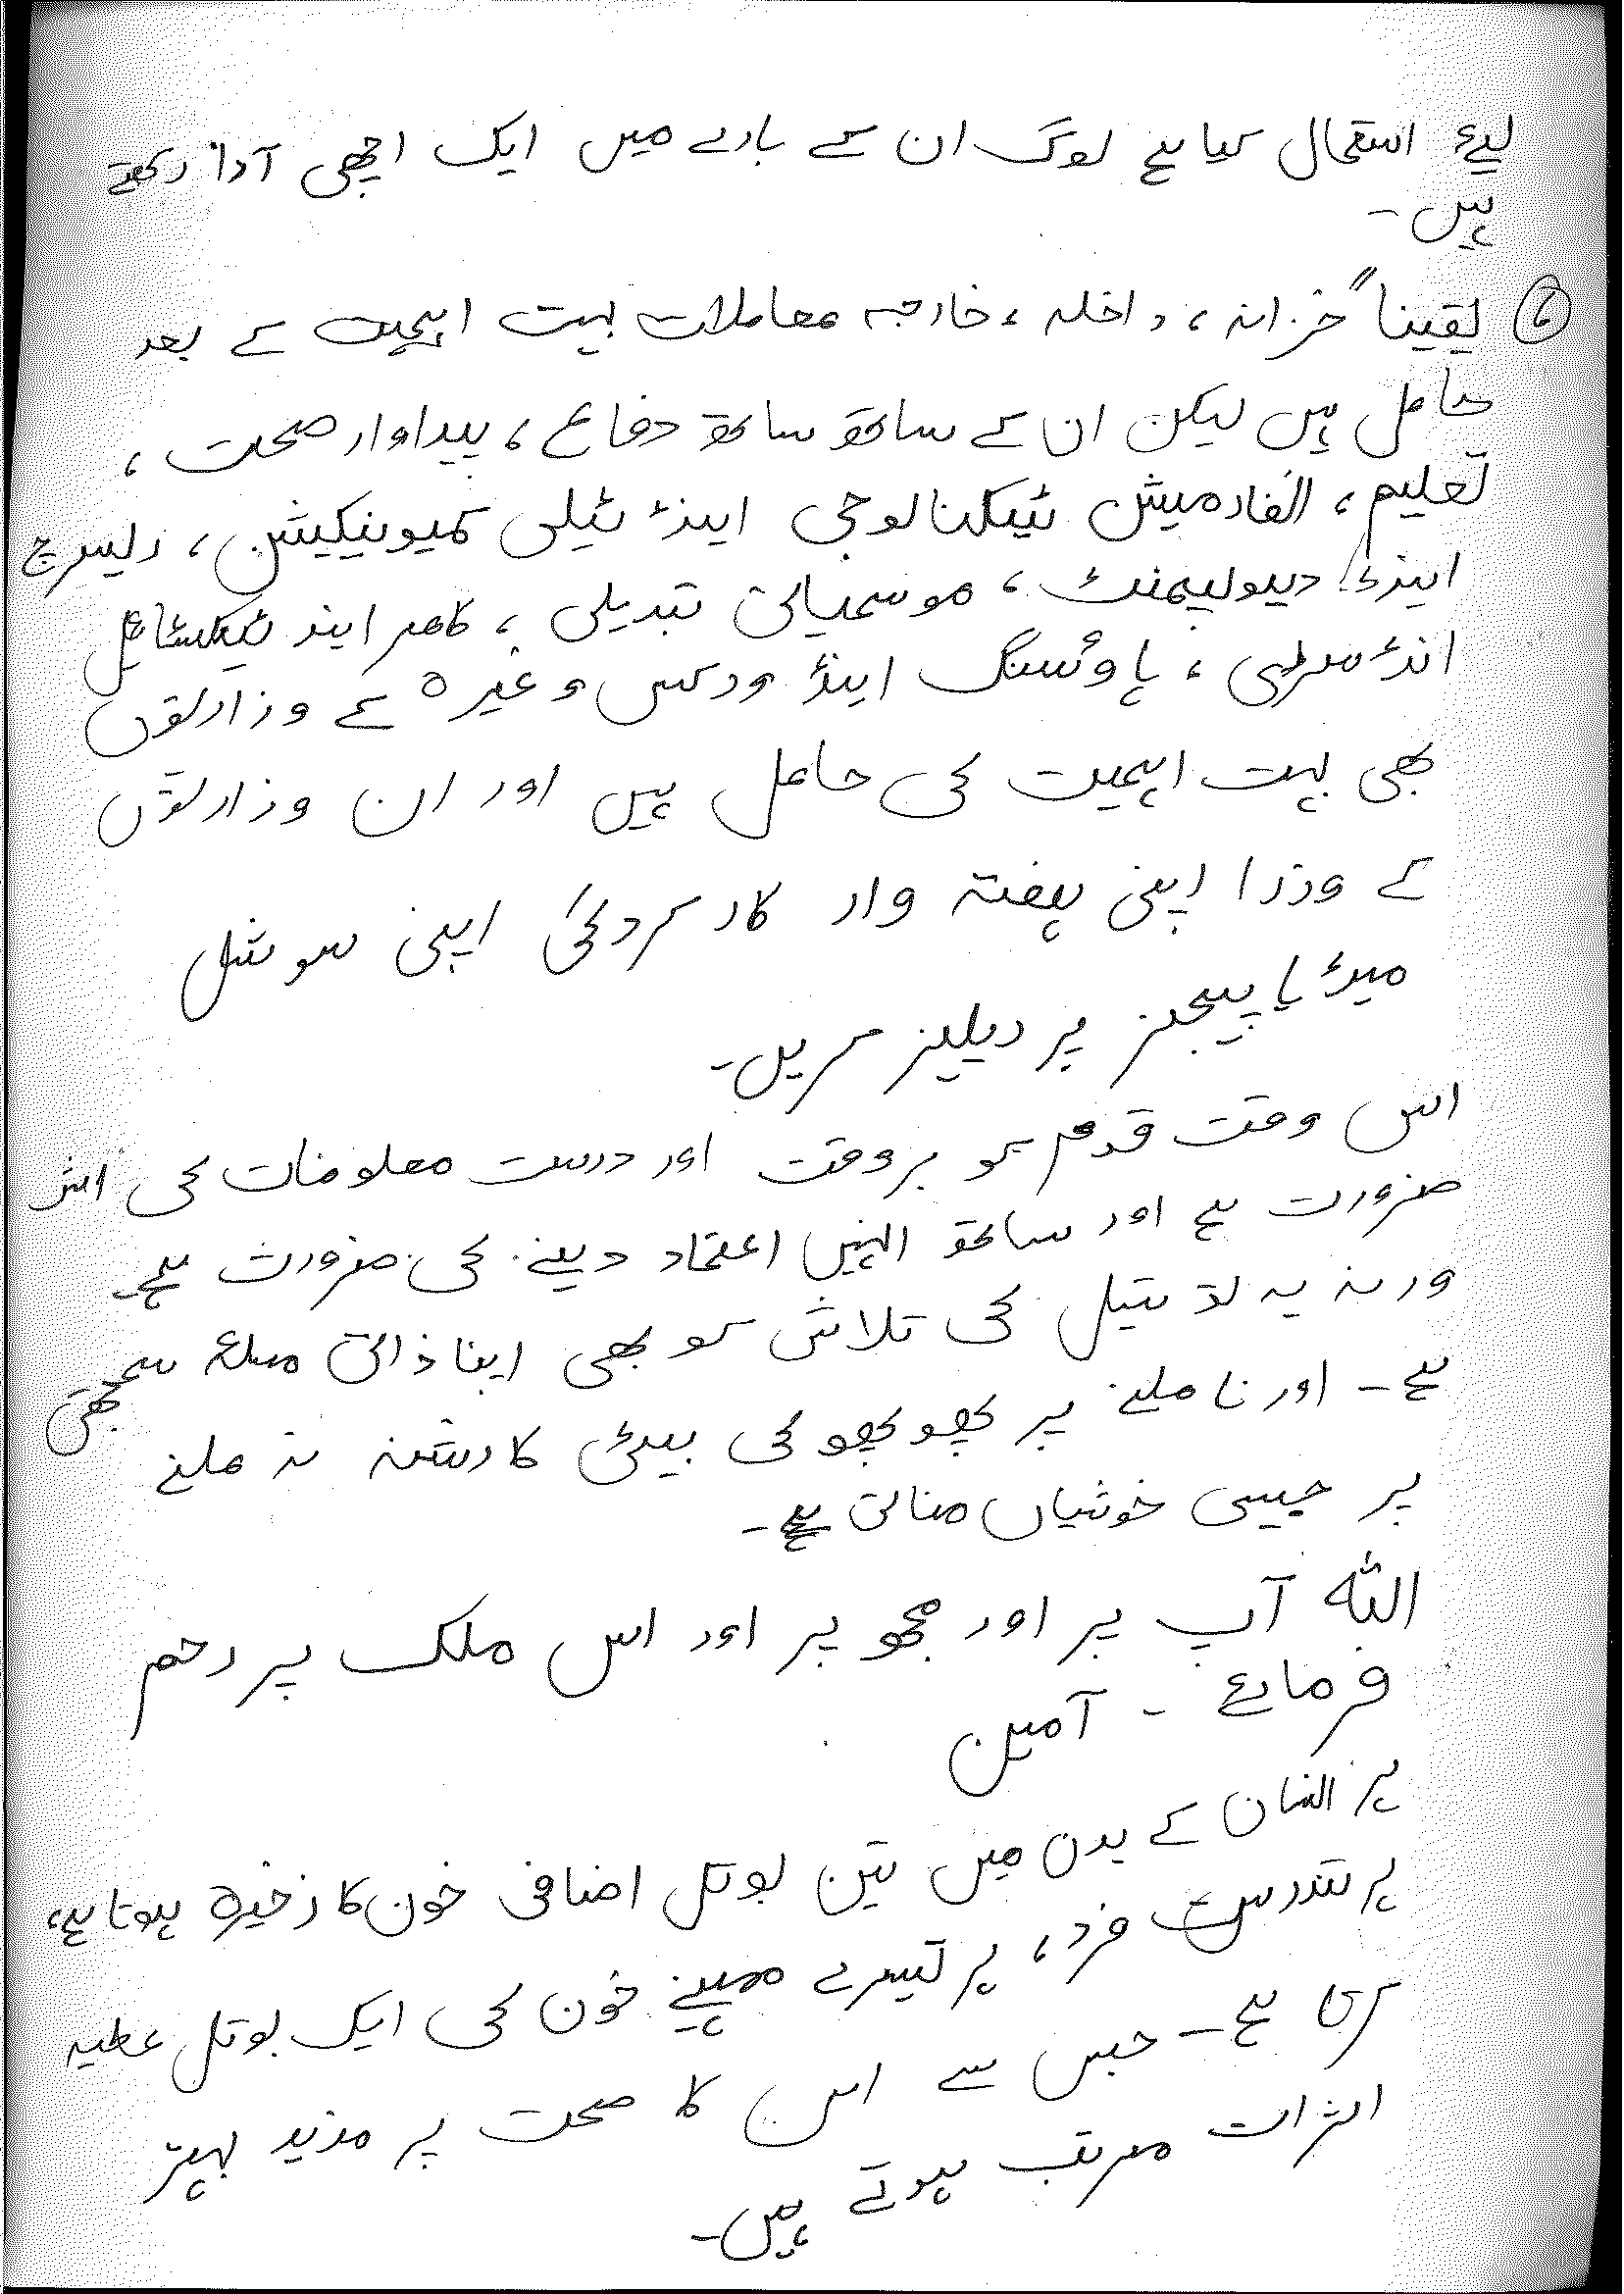 لیئے استعمال کیا ہے لوگ ان کے بارے میں ایک اچھی آواز رکھتے
ہیں۔
۶ یقیناً خزانہ، داخلہ، خارجہ معاملات بہت اہمیت کے بعد
حامل ہیں لیکن ان کے ساتھ ساتھ دفاع، پیداوار صحت،
تعلیم، انفارمیشن ٹیکنالوجی اینڈ ٹیلی کمیونیکیشن، ریسرچ
اینڈ ڈیولپمنٹ، موسمیاتی تبدیلی، کامرس اینڈ ٹیکسٹائل
انڈسٹری، ہاؤسنگ اینڈ ورکس وغیرہ کے وزارتوں
بھی بہت اہمیت کی حامل ہیں اور ان وزارتوں
کے وزرا اپنی ہفتہ وار کارکردگی اپنی سوشل
میڈیا پیجز پر ریلیز کریں۔
اس وقت قوم کو بروقت اور درست معلومات کی اشد
ضرورت ہے اور ساتھ انہیں اعتماد دینے کی ضرورت ہے۔
ورنہ یہ تو تیل کی تلاش کو بھی اپنا ذاتی مسلۂ سمجھتی
ہے۔ اور نا ملنے پر پھوپھو کی بیٹی کا رشتہ نہ ملنے
پر جیسی خوشیاں مناتی ہے۔
اللہ آپ پر اور مجھ پر اور اس ملک پر رحم
فرمائے ۔ آمین
ہر انسان کے بدن میں تین بوتل اضافی خون کا ذخیرہ ہوتا ہے،
ہر تندرست فرد، ہر تیسرے مہینے خون کی ایک بوتل عطیہ
کرتا ہے۔ جس سے اس کا صحت پر مزید بہتر
اثرات مرتب ہوتے ہیں۔